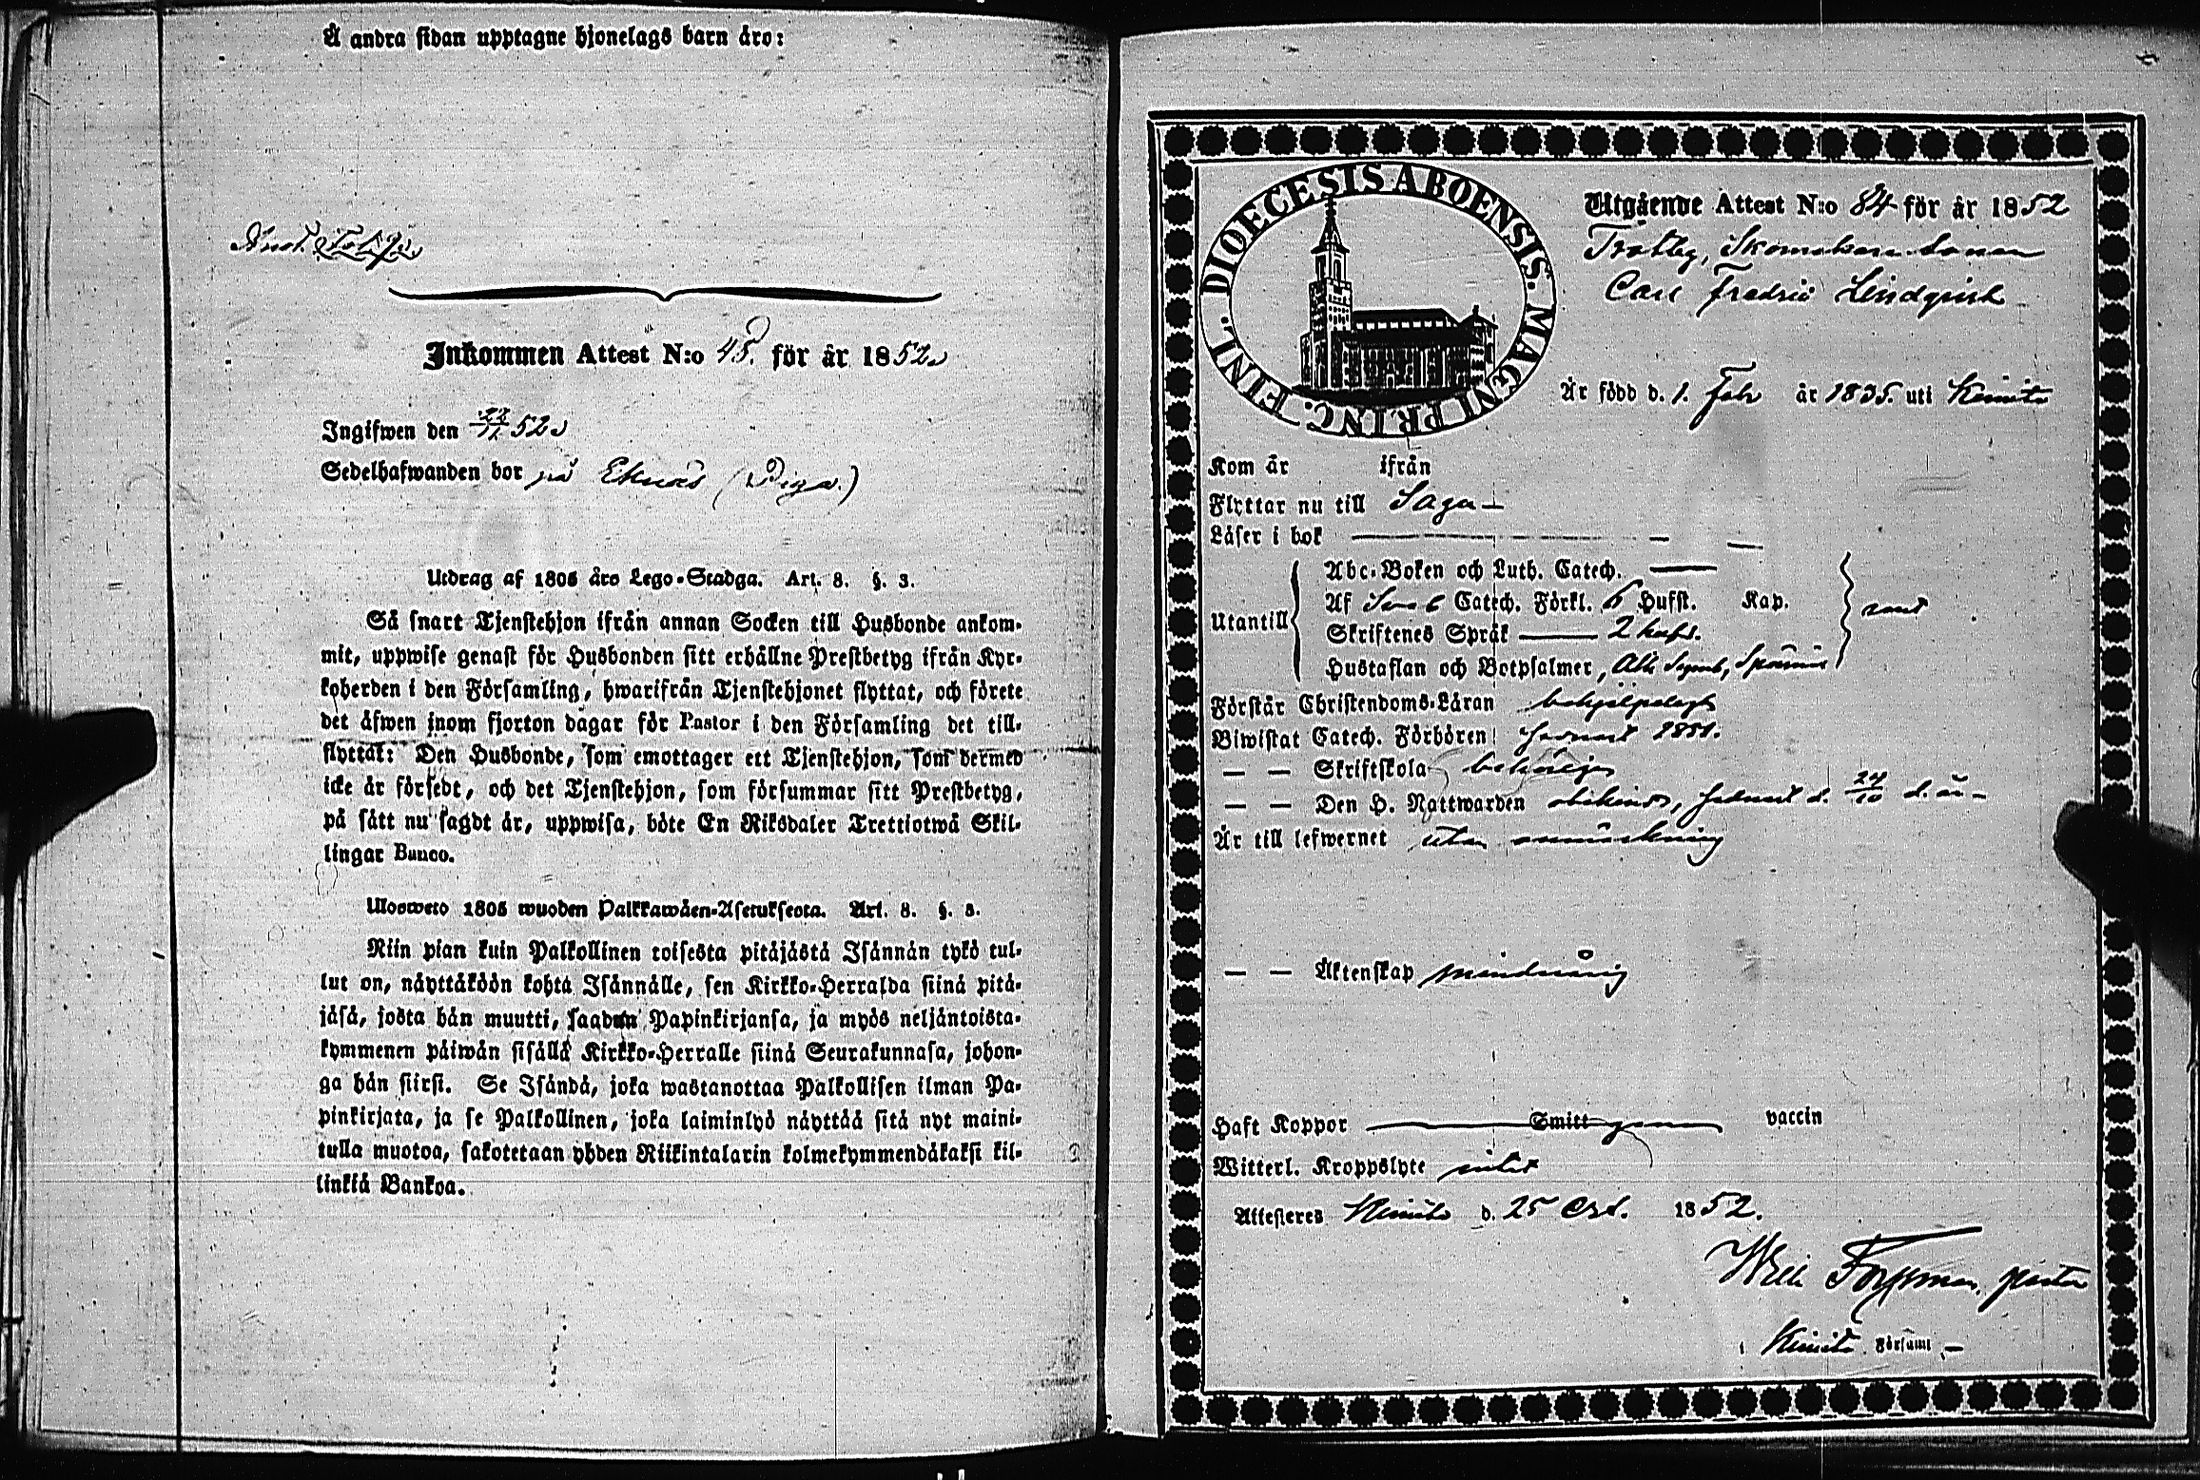 Å andra sidan upptagne hjonelags barn äro:
Inkommen Attest N:o 45. för år 1852.
Ingifwen den 22/11 52.
Sedelhafwanden bor på Eknäs (Piga.)
Utdrag af 1805 års Lego-Stadga. Art. 8. §. 3.
Så snart Tjenstehjon ifrån annan Socken till Husbonde ankom-
mit, uppwise genast för Husbonden sitt erhållne Prestbetyg ifrån Kyr-
koherden i den Församling, hwarifrån Tjenstehjonet flyttat, och förete
det äfwen inom fjorton dagar för Pastor i den Församling det till-
flyttat: Den Husbonde, som emottager ett Tjenstehjon, som dermed
icke är försedt, och det Tjenstehjon, som försummar sitt Prestbetyg,
på sätt nu sagdt är, uppwisa, böte En Riksdaler Trettiotwå Skil-
lingar Banco.
Ulosweto 1805 wuoden Palkkawäen-Asetuksesta. Art. 8. §. 3.
Niin pian kuin Palkollinen toisesta pitäjästä Isännän tykö tul-
lut on, näyttäköön kohta Isännälle, sen Kirkko-Herralda siinä pitä-
jäsä, josta hän muutti, saadun Papinkirjansa, ja myös neljäntoista-
kymmenen päiwän sisällä Kirkko-Herralle siinä Seurakunnasa, johon-
ga hän siirsi. Se Isändä, joka wastanottaa Palkollisen ilman Pa-
pinkirjata, ja se Palkollinen, joka laiminlyö näyttää sitä nyt maini-
tulla muotoa, sakotetaan yhden Riikintalarin kolmekymmendäkaksi kil-
linkiä Bankoa.
DIOECESIS ABOENSIS. MAGNI PRINC. FINL.
Utgående Attest N:o 84 för år 1852
Skomakaresonen
Carl Fredric Lindqvist
Är född d. 1. Febr år 1835. uti Kimito
Kom år ifrån
Flyttar nu till Sagu
Läser i bok
Abc-Boken och Luth. Catech.
Utantill
Af Sveb Catech. Förkl. 6 Hufst. Kap.
Skriftenes Språk 2 hufst.
Hustaflan och Botpsalmer, Ath Symb, Spörsm
Förstår Christendoms-Läran behjelpeligt
Biwistat Catech. Förhören senast 1851.
— — Skriftskola behörigen
— — Den H. Nattwarden obehindr, senast d. 24/10 d. år
Är till lefwernet utan anmärkning
— — Äktenskap minderårig
Haft Koppor Smitt genom vaccin
Witterl. Kroppslyte intet
Attesteres Kimito d. 25 Oct. 1852.
Forssman, pastor
i Kimito Församl.